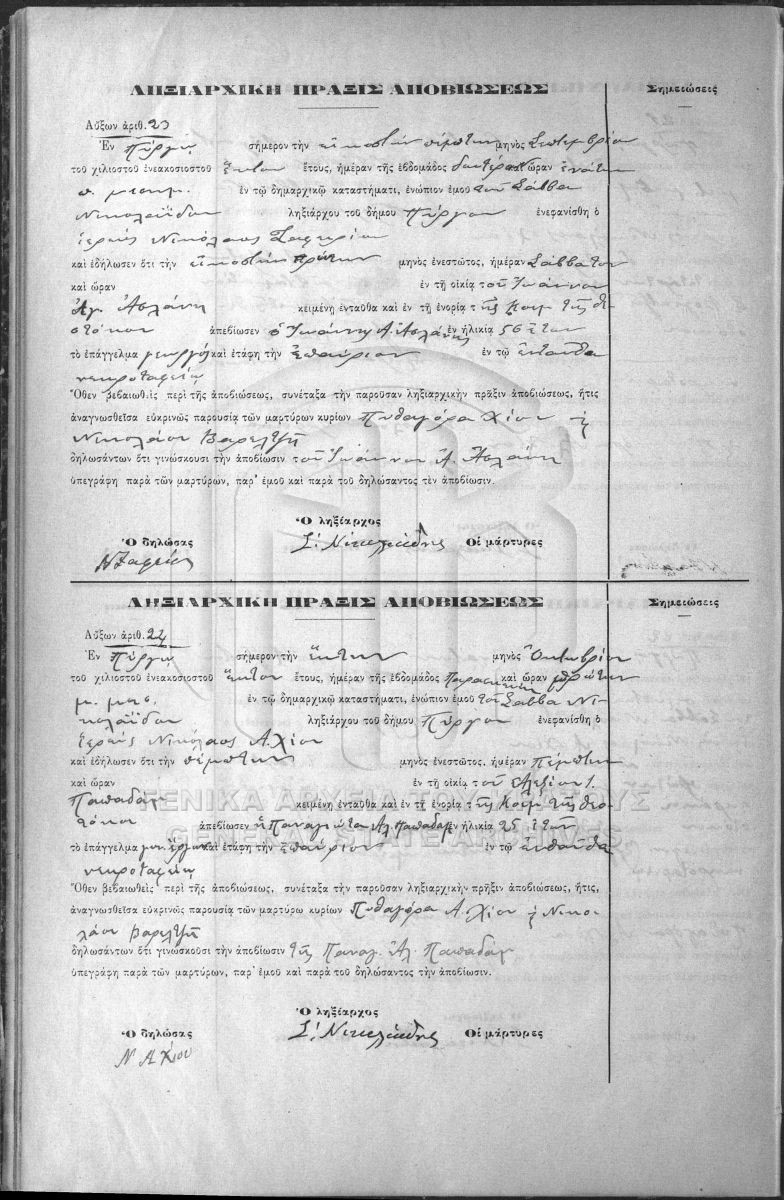 ΛΗΞΙΑΡΧΙΚΗ ΠΡΑΞΙΣ ΑΠΟΒΙΩΣΕΩΣ
Σημειώσεις
Αὔξων ἀριθ. 23
Ἐν Πύργῳ σήμερον τὴν εἰκοστὴν πέμπτην μηνὸς Σεπτεμβρίου
τοῦ χιλιοστοῦ ἐνεακοσιοστοῦ ἕκτου ἔτους, ἡμέραν τῆς ἑβδομάδος δευτέραν ὥραν ἐνάτην
π. μεσημ. ἐν τῷ δημαρχικῷ καταστήματι, ἐνώπιον ἐμοῦ τοῦ Σάββα
Νικολαΐδου ληξιάρχου τοῦ δήμου Πύργου ἐνεφανίσθη ὁ
ἱερεὺς Νικόλαος Ζαφειρίου
καὶ ἐδήλωσεν ὅτι τὴν εἰκοστὴν πρώτην μηνὸς ἐνεστῶτος, ἡμέραν Σάββατον
καὶ ὥραν ἐν τῇ οἰκίᾳ τοῦ Ἰωάννου
Ἀσλάνη κειμένῃ ἐνταῦθα καὶ ἐν τῇ ἐνορίᾳ τῆς Κοιμ. τῆς Θε-
οτόκου ἀπεβίωσεν ὁ Ἰωάννης Α. Ἀσλάνης ἐν ἡλικίᾳ 56 ἐτῶν
τὸ ἐπάγγελμα γεωργὸς καὶ ἐτάφη τὴν ἐπαύριον ἐν τῷ ἐνταῦθα
νεκροταφείῳ
Ὅθεν βεβαιωθεὶς περὶ τῆς ἀποβιώσεως, συνέταξα τὴν παροῦσαν ληξιαρχικὴν πρᾶξιν ἀποβιώσεως, ἥτις
ἀναγνωσθεῖσα εὐκρινῶς παρουσίᾳ τῶν μαρτύρων κυρίων Πυθαγόρα Χίου ἢ
Νικολάου Βαρελτζῆ
δηλωσάντων ὅτι γινώσκουσι τὴν ἀποβίωσιν τοῦ Ἰωάννου Α. Ἀσλάνη
ὑπεγράφη παρὰ τῶν μαρτύρων, παρ' ἐμοῦ καὶ παρὰ τοῦ δηλώσαντος τὴν ἀποβίωσιν.
Ὁ ληξίαρχος
Ὁ δηλώσας Σ. Νικολαΐδης Οἱ μάρτυρες
ΛΗΞΙΑΡΧΙΚΗ ΠΡΑΞΙΣ ΑΠΟΒΙΩΣΕΩΣ
Σημειώσεις
Αὔξων ἀριθ. 24
Ἐν Πύργῳ σήμερον τὴν ἕκτην μηνὸς Ὀκτωβρίου
τοῦ χιλιοστοῦ ἐνεακοσιοστοῦ ἕκτου ἔτους, ἡμέραν τῆς ἑβδομάδος Παρασκευὴν καὶ ὥραν πρώτην
μ. μεσ. ἐν τῷ δημαρχικῷ καταστήματι, ἐνώπιον ἐμοῦ τοῦ Σάββα Νι-
κολαΐδου ληξιάρχου τοῦ δήμου Πύργου ἐνεφανίσθη ὁ
ἱερεὺς Νικόλαος Α. Χίου
καὶ ἐδήλωσεν ὅτι τὴν πέμπτην μηνὸς ἐνεστῶτος, ἡμέραν Πέμπτην
καὶ ὥραν ἐν τῇ οἰκίᾳ τοῦ Ἀλεξίου Ι.
Παπαδάκ κειμένῃ ἐνταῦθα καὶ ἐν τῇ ἐνορίᾳ τῆς Κοιμ. τῆς Θεο-
τόκου ἀπεβίωσεν ἡ Παναγιώτα Αλ. Παπαδάκ ἐν ἡλικίᾳ 25 ἐτῶν
τὸ ἐπάγγελμα καὶ ἐτάφη τὴν ἐπαύριον ἐν τῷ ἐνταῦθα
νεκροταφείῳ
Ὅθεν βεβαιωθεὶς περὶ τῆς ἀποβιώσεως, συνέταξα τὴν παροῦσαν ληξιαρχικὴν πρᾶξιν ἀποβιώσεως, ἥτις,
ἀναγνωσθεῖσα εὐκρινῶς παρουσίᾳ τῶν μαρτύρω κυρίων Πυθαγόρα Α. Χίου ἢ Νικο-
λάου Βαρελτζῆ
δηλωσάντων ὅτι γινώσκουσι τὴν ἀποβίωσιν τῆς Παναγ. Αλ. Παπαδάκ
ὑπεγράφη παρὰ τῶν μαρτύρων, παρ' ἐμοῦ καὶ παρὰ τοῦ δηλώσαντος τὴν ἀποβίωσιν.
Ὁ ληξίαρχος
Ὁ δηλώσας Σ. Νικολαΐδης Οἱ μάρτυρες
Ν Α Χίου
ΓΕΝΙΚΑ ΑΡΧΕΙΑ ΤΟΥ ΚΡΑΤΟΥΣ
GENERAL STATE ARCHIVES